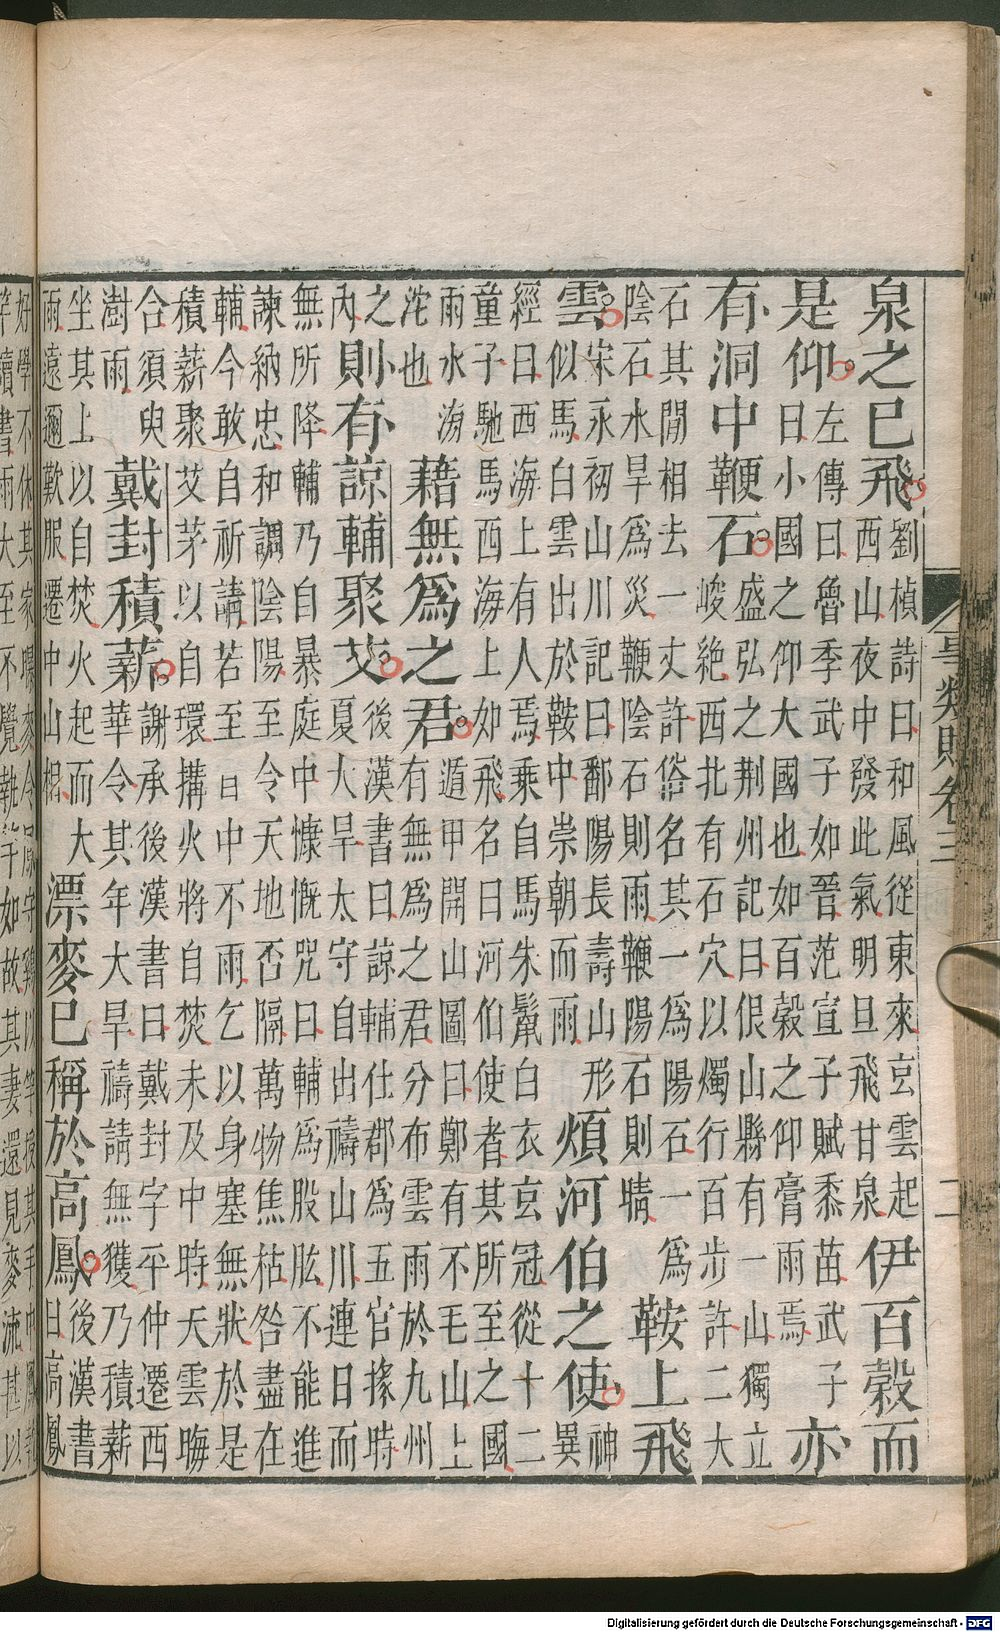 泉之已飛劉楨詩曰和風從東來玄雲起西山夜中發此氣明旦飛甘泉伊百穀而
是仰左傳曰魯季武子如晉范宣子賦黍苗武子曰小國之仰大國也如百穀之仰膏雨焉亦
有洞中鞭石盛弘之荊州記曰佷山縣有一山獨立峻絶西北有石穴以燭行百步許二大
石其閒相去一丈許俗名其一為陽石一為陰石水旱為災鞭陰石則雨鞭陽石則晴鞍上飛
雲宋永初山川記曰鄱陽長壽山形似馬白雲出於鞍中崇朝而雨煩河伯之使神異
經曰西海上有人焉乘自馬朱鬣白衣玄冠從十二童子馳馬西海上如飛名曰河伯使者其所至之國
雨水滂沱也藉無為之君遁甲開山圖曰鄭有不毛山上有無為之君分布雲雨於九州
之內則有諒輔聚艾後漢書曰諒輔仕郡為五官掾時夏大旱太守自出禱山川連日而
無所降輔乃自暴庭中慷慨咒曰輔為股肱不能進諫納忠和調陰陽至令天地否隔萬物焦枯咎盡在
輔今敢自祈請若至日中不雨乞以身塞無狀於是積薪聚艾茅以自環搆火將自焚未及中時天雲晦
合須臾澍雨戴封積薪謝承後漢書曰戴封字平仲遷西華令其年大旱禱請無獲乃積薪
坐其上以自焚火起而大雨遠邇歎服遷中山相漂麥已稱於高鳳後漢書曰高鳳
好學不休其家曝麥令鳳守雞以竿授其手中鳳竿讀書雨大至不覺執竿如故其妻還見麥流甚以
類賦卷三
二
Digitalisierung gefördert durch die Deutsche Forschungsgemeinschaft - DFG